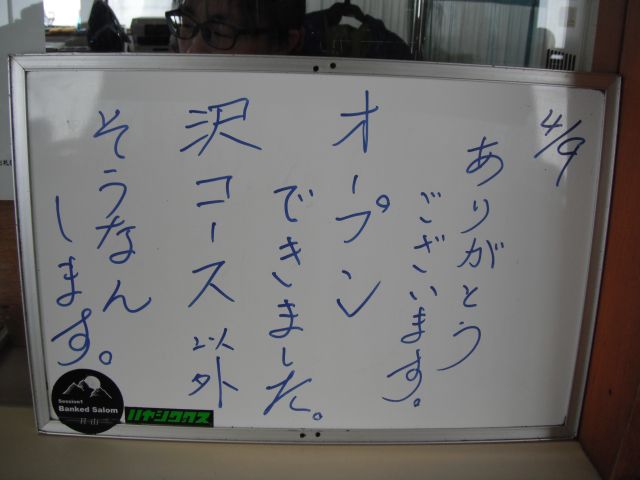 4/9
ありがとう
ございます。
オープン
できました。
沢コース以外
そうなん
します。
Session1
Banked Salom
月山
ハヤシワックス